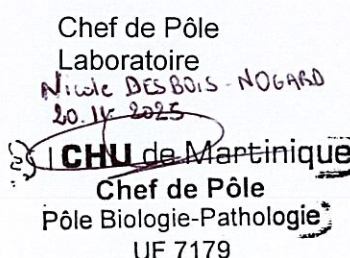 Chef de Pôle
Laboratoire
Nicole DESBOIS-NOGARD
2025
CHU de Martinique
Chef de Pôle
Pôle Biologie-Pathologie
UF 7179